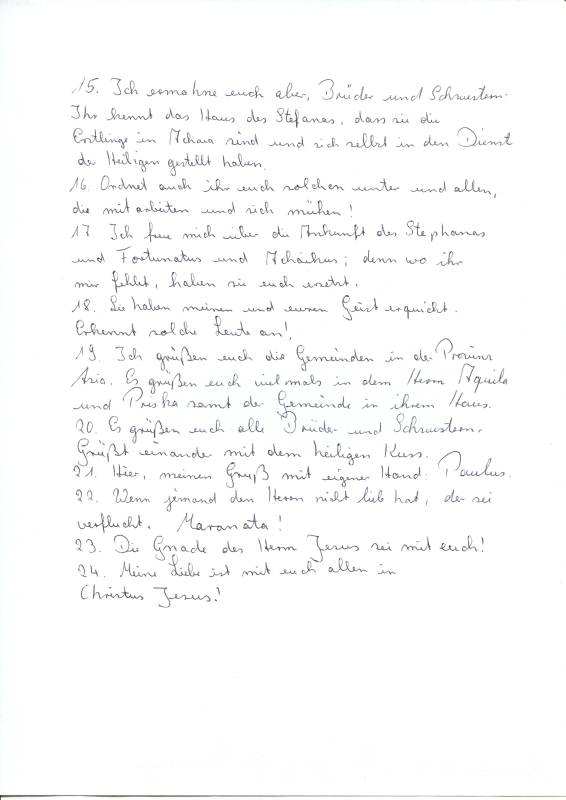 15. Ich ermahne euch aber, Brüder und Schwestern:
Ihr kennt das Haus des Stefanas, dass sie die
Erstlinge in Achaia sind und sich selbst in den Dienst
der Heiligen gestellt haben.
16. Ordnet auch ihr euch solchen unter und allen,
die mitarbeiten und sich mühen!
17. Ich freue mich über die Ankunft des Stephanas
und Fortunatus und Achaikus; denn wo ihr
mir fehlt, haben sie euch ersetzt.
18. Sie haben meinen und euren Geist erquickt.
Erkennt solche Leute an!
19. Ich grüßen euch die Gemeinden in der Provinz
Asia. Es grüßen euch vielmals in dem Herrn Aquila
und Priska samt der Gemeinde in ihrem Haus.
20. Es grüßen euch alle Brüder und Schwestern.
Grüßt einander mit dem heiligen Kuss.
21. Hier, meinen Gruß mit eigener Hand: Paulus.
22. Wenn jemand den Herrn nicht lieb hat, der sei
verflucht. Maranata!
23. Die Gnade des Herrn Jesus sei mit euch!
24. Meine Liebe ist mit euch allen in
Christus Jesus!